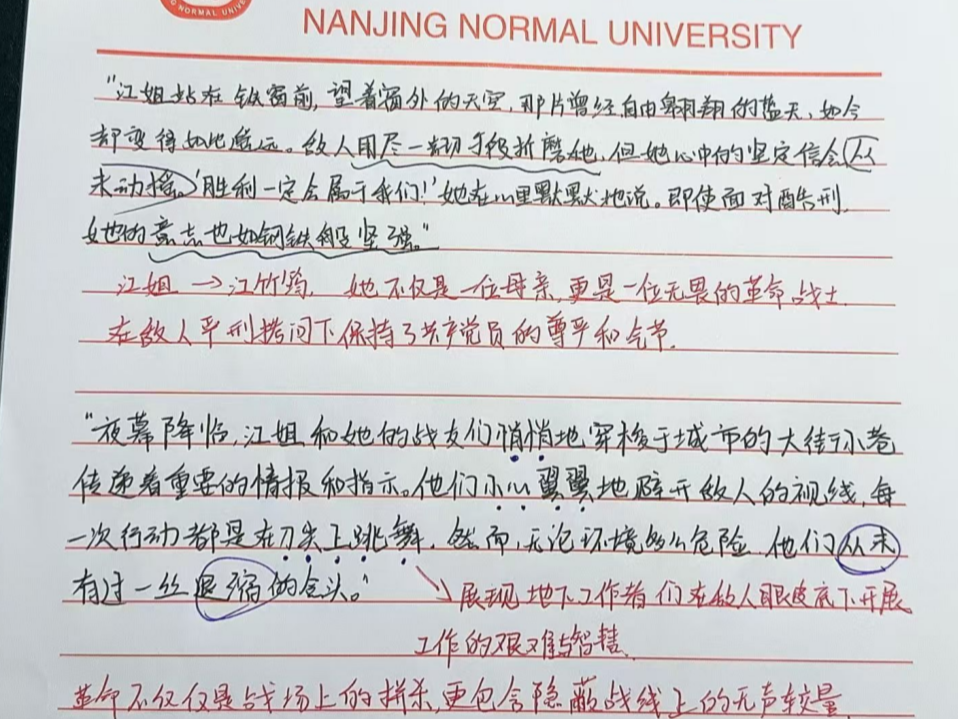 NORMAL UNIVER
NANJING NORMAL UNIVERSITY
“江姐站在铁窗前,望着窗外的天空,那片曾经自由翱翔的蓝天,如今
却变得如此遥远。敌人用尽一切手段折磨她,但她心中的坚定信念从
未动摇,‘胜利一定会属于我们!’她在心里默默地说。即使面对酷刑,
她的意志也如钢铁般坚强。”
江姐→江竹筠,她不仅是一位母亲,更是一位无畏的革命战士
在敌人严刑拷问下保持了共产党员的尊严和气节.
“夜幕降临,江姐和她的战友们悄悄地穿梭于城市的大街小巷
传递着重要的情报和指示。他们小心翼翼地避开敌人的视线,每
一次行动都是在刀尖上跳舞,然而,无论环境多么危险,他们从未
有过一丝退缩的念头。”
↘展现地下工作者们在敌人眼皮底下开展
工作的艰难与智慧.
革命不仅仅是战场上的拼杀,更包含隐蔽战线上的无声较量.